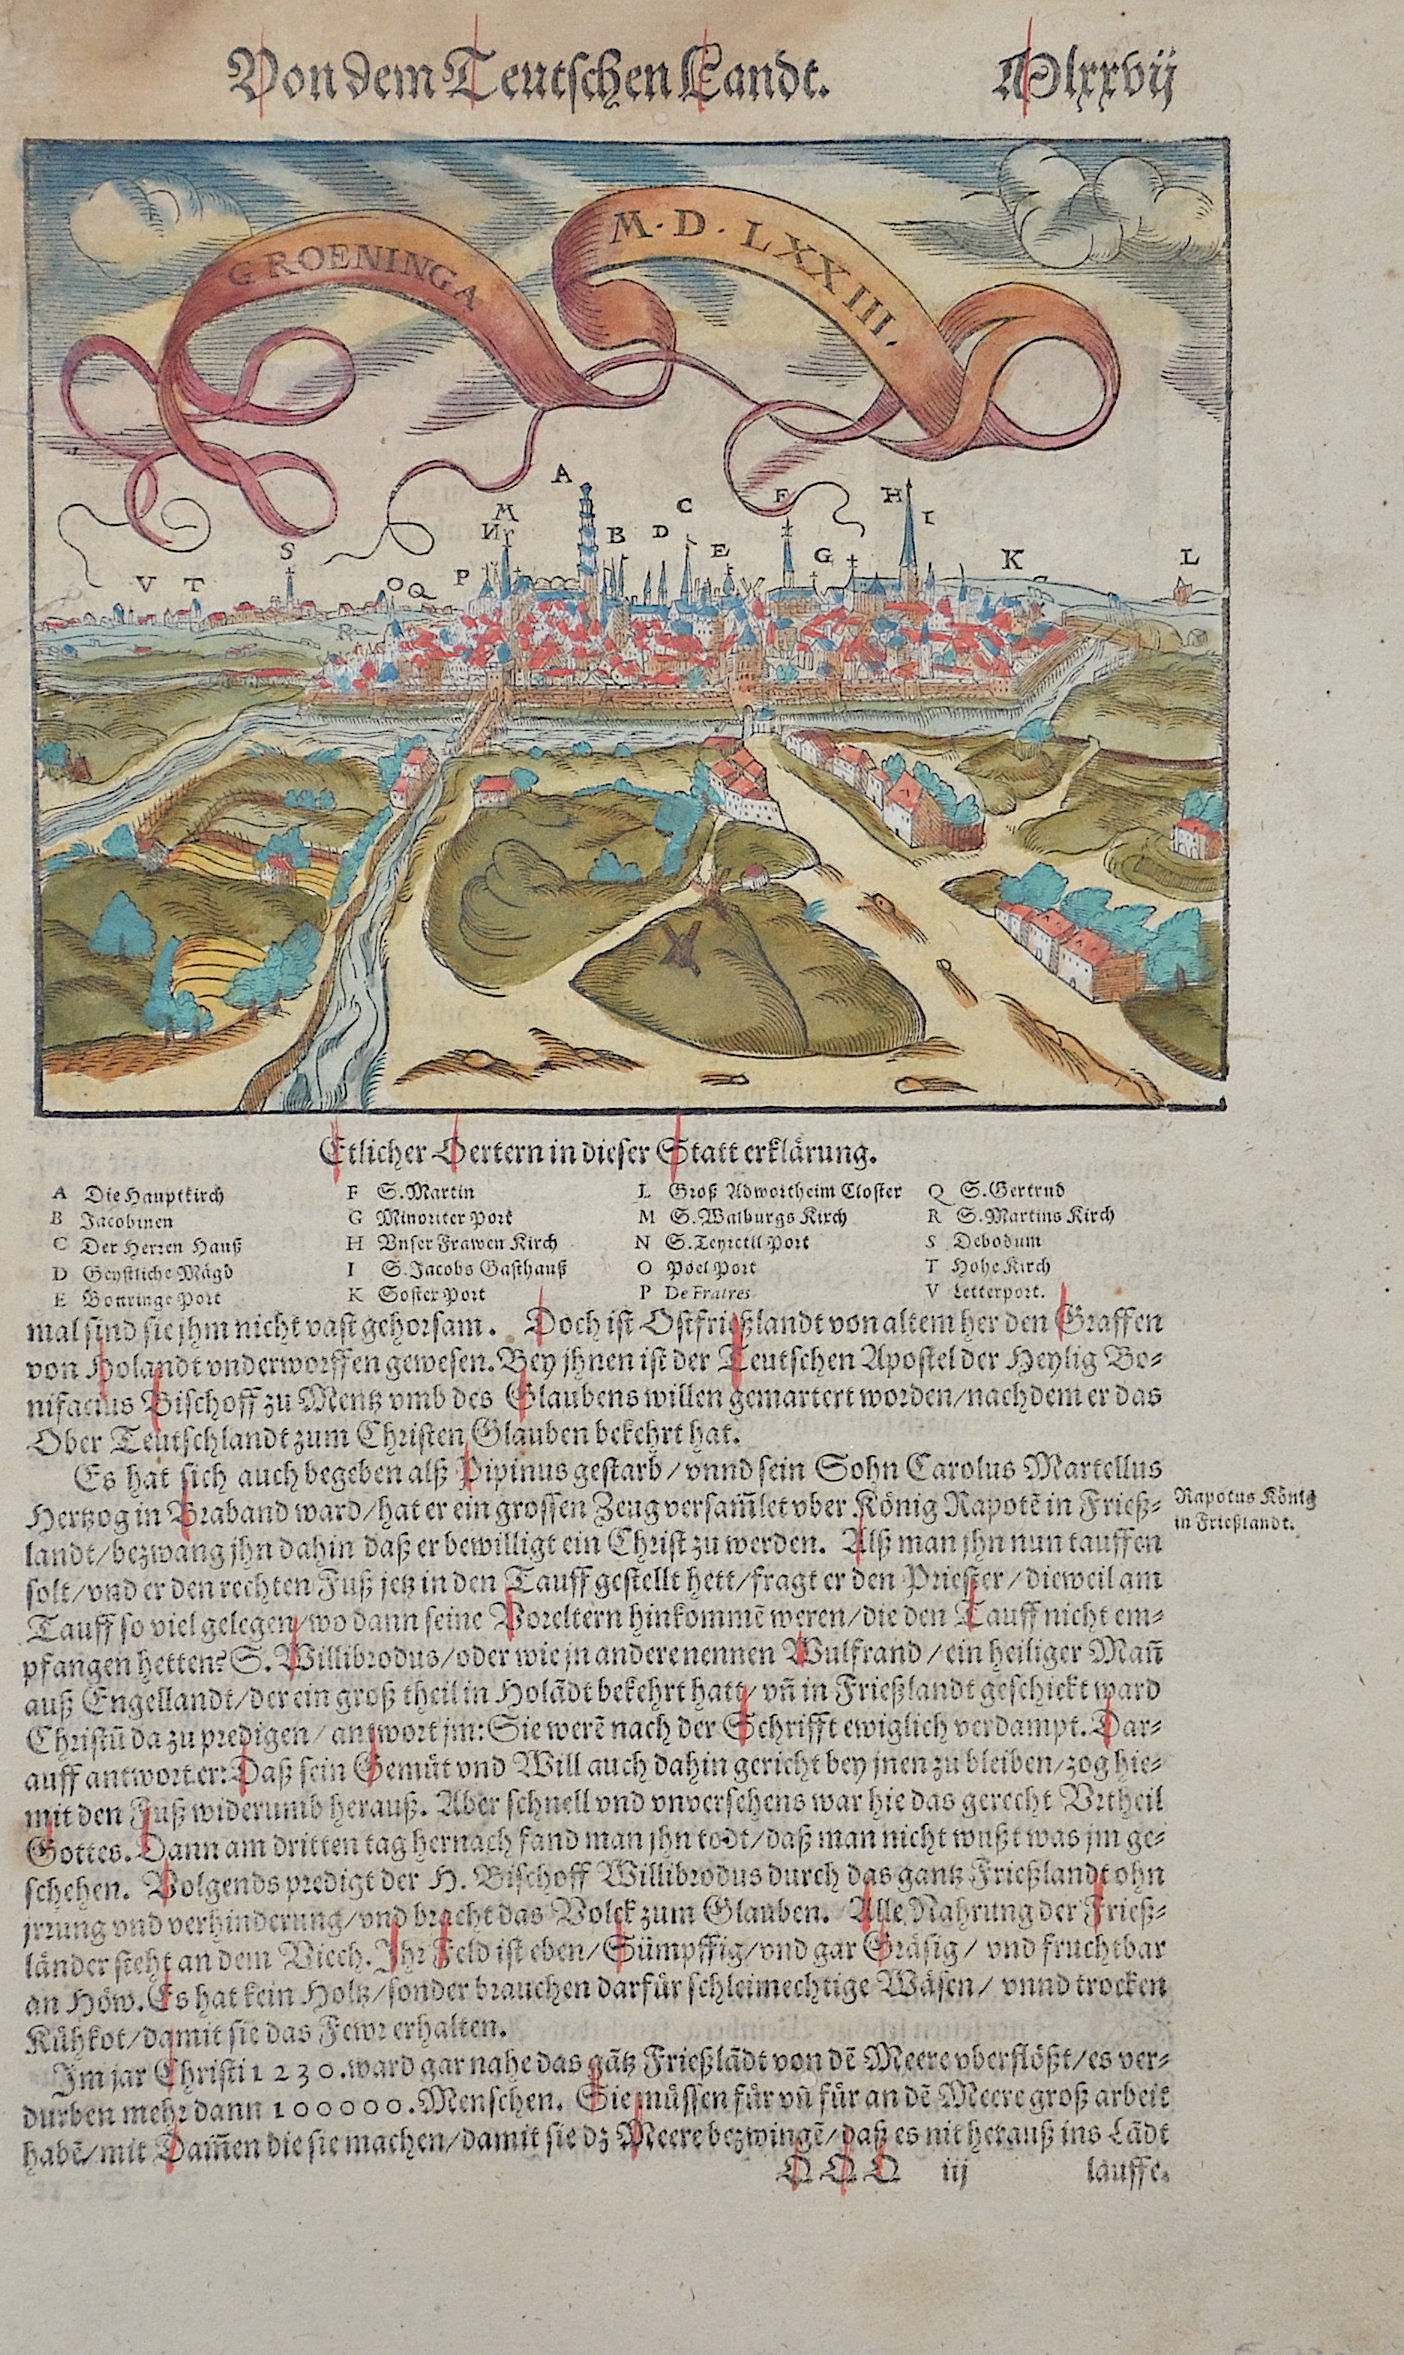 Von dem Teutschen Landt. Mlxxvij
GROENINGA
M·D·LXXIII.
A
C
F
H
M
I
N
B
D
E
S
G
K
L
V T
O Q P
R
Etlicher Oertern in dieser Statt erklärung.
A Die Hauptkirch
B Jacobinen
C Der Herren Hauß
D Geystliche Mägd
E Bottringe Port
F S. Martin
G Minoriter Port
H Vnser Frawen Kirch
I S. Jacobs Gasthauß
K Soster Port
L Groß Adwortheim Closter
M S. Walburgs Kirch
N S. Teyrctil Port
O Poel Port
P De Fratres
Q S. Gertrud
R S. Martins Kirch
S Debodum
T Hohe Kirch
V Letterport.
mal sind sie jhm nicht vast gehorsam. Doch ist Ostfrießlandt von altem her den Graffen
von Holandt vnderworffen gewesen. Bey jhnen ist der Teutschen Apostel der Heylig Bo-
nifacius Bischoff zu Mentz vmb des Glaubens willen gemartert worden/nachdem er das
Ober Teutschlandt zum Christen Glauben bekehrt hat.
Es hat sich auch begeben alß Pipinus gestarb/vnnd sein Sohn Carolus Martellus
Hertzog in Braband ward/hat er ein grossen Zeug versam̃let vber König Rapotẽ in Frieß-
landt/bezwang jhn dahin daß er bewilligt ein Christ zu werden. Alß man jhn nun tauffen
solt/vnd er den rechten Fuß jetz in den Tauff gestellt hett/fragt er den Priester/dieweil am
Tauff so viel gelegen/wo dann seine Voreltern hinkommẽ weren/die den Tauff nicht em-
pfangen hetten? S. Willibrodus/oder wie jn andere nennen Wulfrand/ein heiliger Mañ
auß Engellandt/der ein groß theil in Holãdt bekehrt hatt/vñ in Frießlandt geschickt ward
Christũ da zu predigen/antwort jm: Sie werẽ nach der Schrifft ewiglich verdampt. Dar-
auff antwort er: Daß sein Gemüt vnd Will auch dahin gericht bey jnen zu bleiben/zog hie-
mit den Fuß widerumb herauß. Aber schnell vnd vnversehens war hie das gerecht Vrtheil
Gottes. Dann am dritten tag hernach fand man jhn todt/daß man nicht wußt was jm ge-
schehen. Volgends predigt der H. Bischoff Willibrodus durch das gantz Frießlandt ohn
jrrung vnd verhinderung/vnd bracht das Volck zum Glauben. Alle Nahrung der Frieß-
länder steht an dem Viech. Ihr Feld ist eben/Sümpffig/vnd gar Gräsig/vnd fruchtbar
an Höw. Es hat kein Holtz/sonder brauchen darfür schleimechtige Wäsen/vnnd trocken
Kühkot/damit sie das Fewr erhalten.
Im jar Christi 1230. ward gar nahe das gãtz Frießlãdt von dẽ Meere vberflößt/es ver-
durben mehr dann 100000. Menschen. Sie müssen für vñ für an dẽ Meere groß arbeit
habẽ/mit Dam̃en die sie machen/damit sie dz Meere bezwingẽ/daß es nit herauß ins Lãdt
QQQ iij lauffe.
Rapotus König
in Frießlandt.